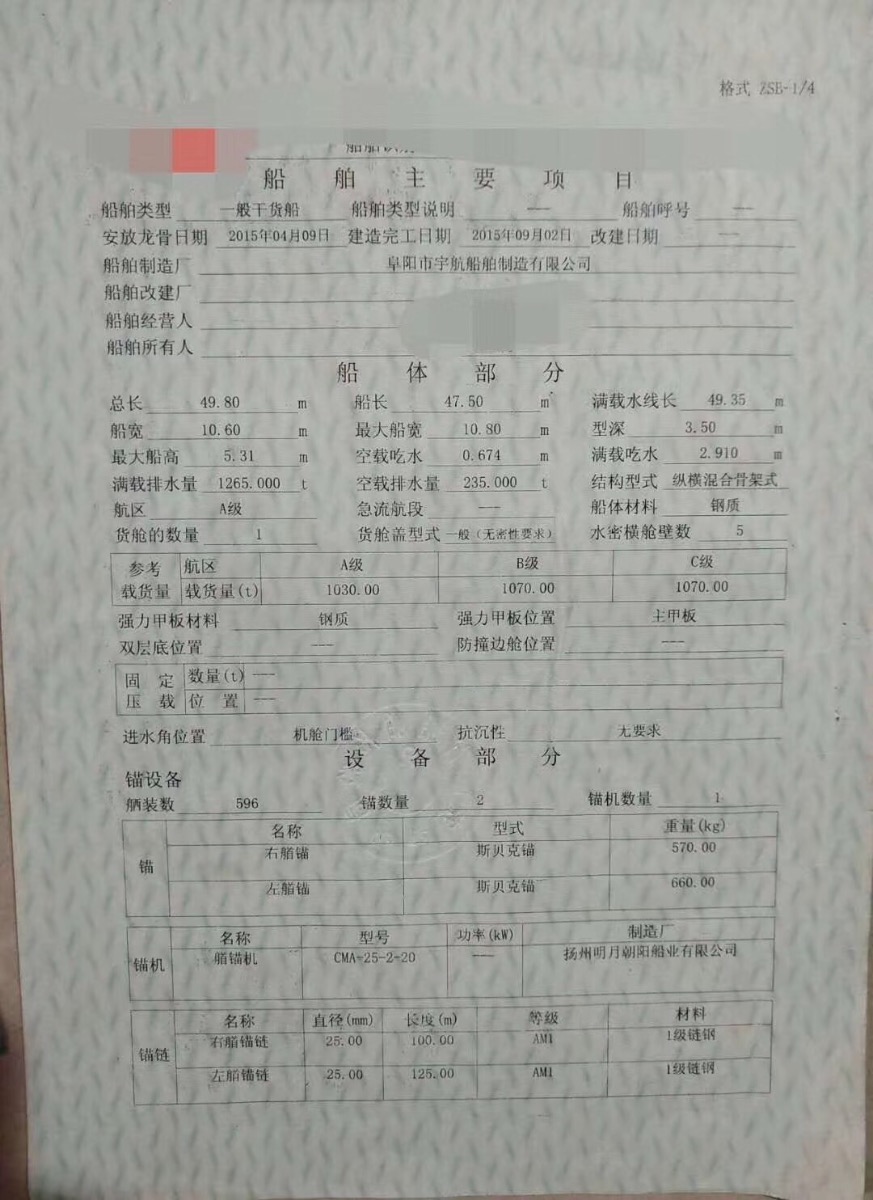 格式 ZSB-1/4
船舶主要项目
船舶类型 一般干货船 船舶类型说明 --- 船舶呼号 ---
安放龙骨日期 2015年04月09日 建造完工日期 2015年09月02日 改建日期 ---
船舶制造厂 阜阳市宇航船舶制造有限公司
船舶改建厂
船舶经营人
船舶所有人
船体部分
总长 49.80 m 船长 47.50 m 满载水线长 49.35 m
船宽 10.60 m 最大船宽 10.80 m 型深 3.50 m
最大船高 5.31 m 空载吃水 0.674 m 满载吃水 2.910 m
满载排水量 1265.000 t 空载排水量 235.000 t 结构型式 纵横混合骨架式
航区 A级 急流航段 --- 船体材料 钢质
货舱的数量 1 货舱盖型式 一般(无密性要求) 水密横舱壁数 5
参考 航区 A级 B级 C级
载货量 载货量(t) 1030.00 1070.00 1070.00
强力甲板材料 钢质 强力甲板位置 主甲板
双层底位置 --- 防撞边舱位置 ---
固定 数量(t) ---
压载 位置 ---
进水角位置 机舱门槛 抗沉性 无要求
设备部分
锚设备
舾装数 596 锚数量 2 锚机数量 1
名称 型式 重量(kg)
锚 右艏锚 斯贝克锚 570.00
左艏锚 斯贝克锚 660.00
名称 型号 功率(kW) 制造厂
锚机 艏锚机 CMA-25-2-20 --- 扬州明月朝阳船业有限公司
名称 直径(mm) 长度(m) 等级 材料
锚链 右艏锚链 25.00 100.00 AM1 1级链钢
左艏锚链 25.00 125.00 AM1 1级链钢